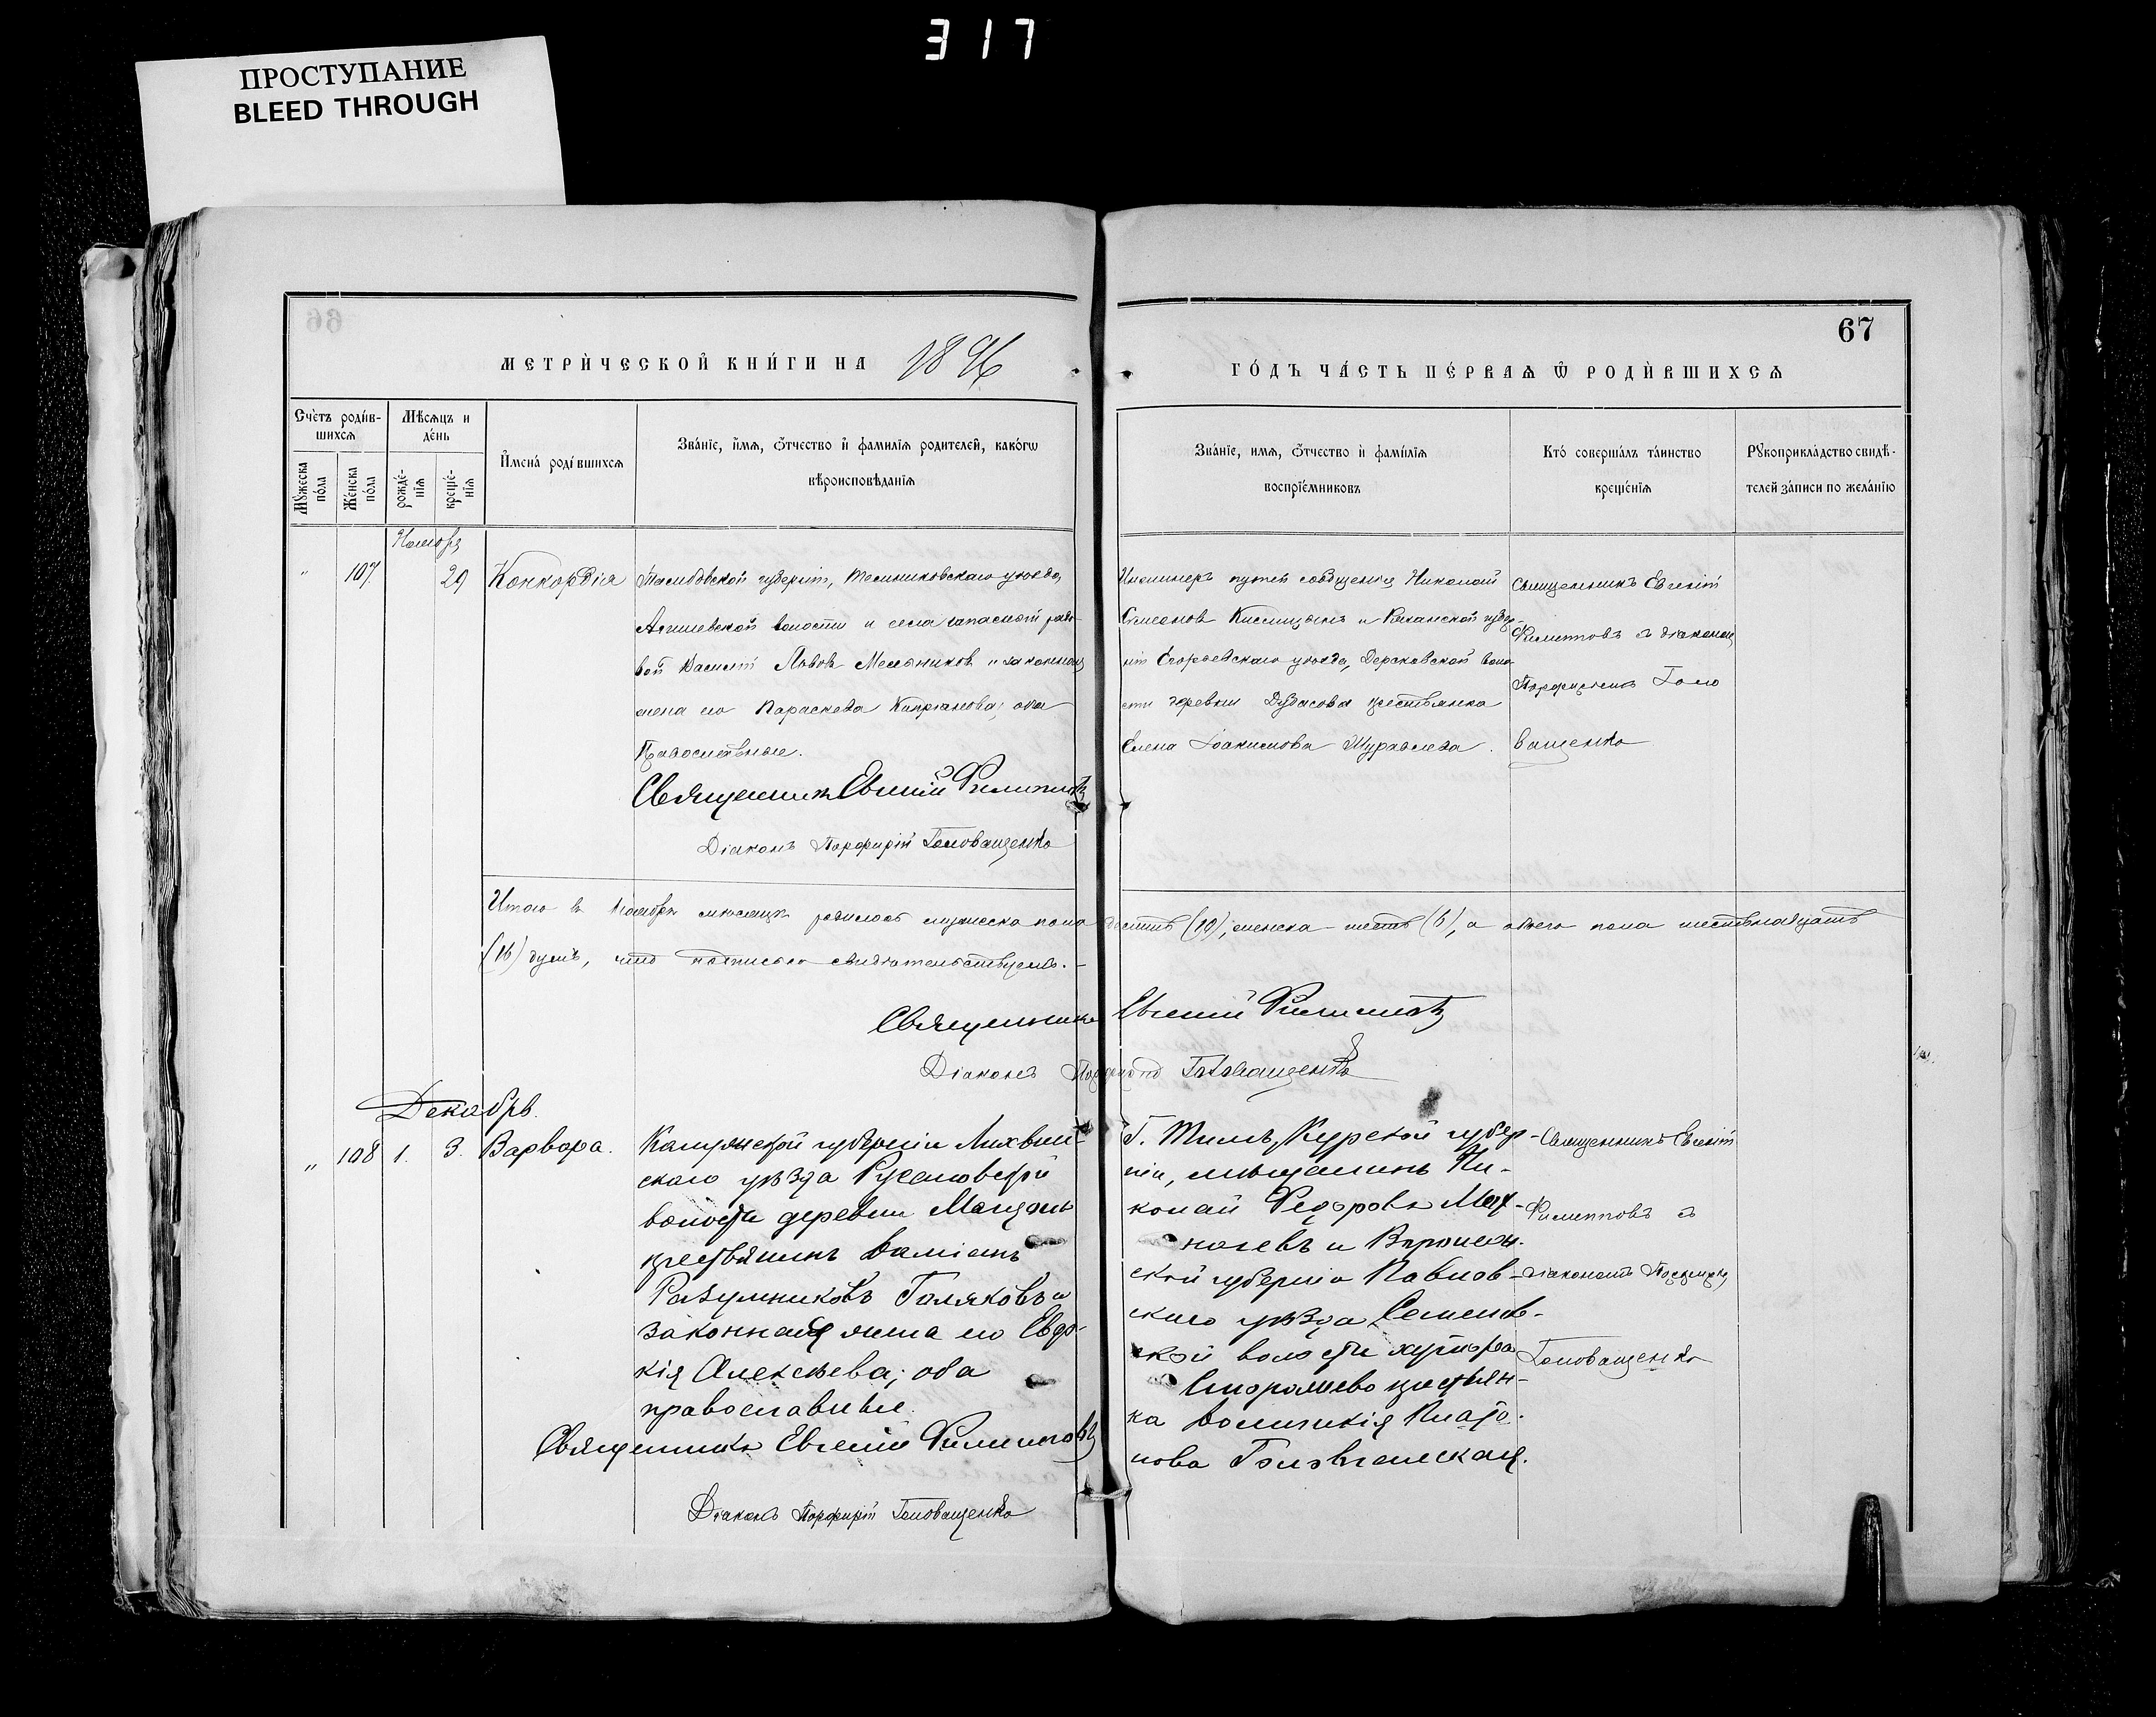 317
ПРОСТУПАНИЕ
BLEED THROUGH
66
67
МЕТРИ́ЧЕСКОЙ КНИ́ГИ НА 1896
ГО́ДЪ ЧА́СТЬ ПЕ́РВАѦ Ѿ РОДИ́ВШИХСѦ
Сче́тъ роди́в-
шихсѧ
Мѣсѧцъ и
де́нь
Мꙋ́жеска
по́ла
Же́нска
по́ла
рожде́-
нїѧ
креще́-
нїѧ
И҆мена́ роди́вшихсѧ
Зва́нїе, и҆́мѧ, ѻ҆́тчество и҆ фами́лїѧ родителей, како́гѡ
вѣроисповѣ́данїѧ
Зва́нїе, имѧ, ѻ҆́тчество и҆ фами́лїѧ
воспрїе́мниковъ
Кто́ соверша́лъ та́инство
креще́нїѧ
Рꙋкоприкла́дство свидѣ́-
телей за́писи по жела́нїю
Ноября
" 107 29 Конкордія
Тамбовской губерніи, Темниковскаго уѣзда,
волости и села запасной рядо-
вой Василій Львовъ Мельниковъ и законная
жена его Параскева Кипріанова; оба
Православные.
Священникъ Евгеній Филипповъ
Діаконъ Порфирій Головащенко
Инженеръ путей сообщенія Николай
Симеоновъ Кислицынъ и Рязанской губер-
ніи Егорьевскаго уѣзда, воло-
сти деревни Дубасова крестьянка
Елена Іоакимова Журавлева.
Священникъ Евгеній
Филипповъ съ діакономъ
Порфиріемъ Голо
ващенко
Итого въ Ноябрѣ мѣсяцѣ родилось мужеска пола десять (10), женска - шесть (6), а обоего пола шестьнадцать
(16) душъ, что подписью свидѣтельствуемъ. -
Священникъ Евгеній Филипповъ
Діаконъ Порфирій Головащенко
Декабрь.
" 108 1. 3. Варвара.
Калужской губерніи Лихвин-
скаго уѣзда Русановской
волости деревни
крестьянинъ Даміанъ
Разумниковъ Голяковъ и
законная жена его Евдо-
кія Алексѣева; оба
православные.
Священникъ Евгеній Филипповъ
Діаконъ Порфирій Головащенко
Г. Тимъ, Курской губер-
ніи, мѣщанинъ Ни-
колай Ѳедоровъ Мах-
начевъ и Воронеж-
ской губерніи Павлов-
скаго уѣзда Семенов-
ской волости хутора
крестьян-
ка Домникія Плато-
нова
Священникъ Евгеній
Филипповъ съ
діакономъ Порфиріемъ
Головащенко